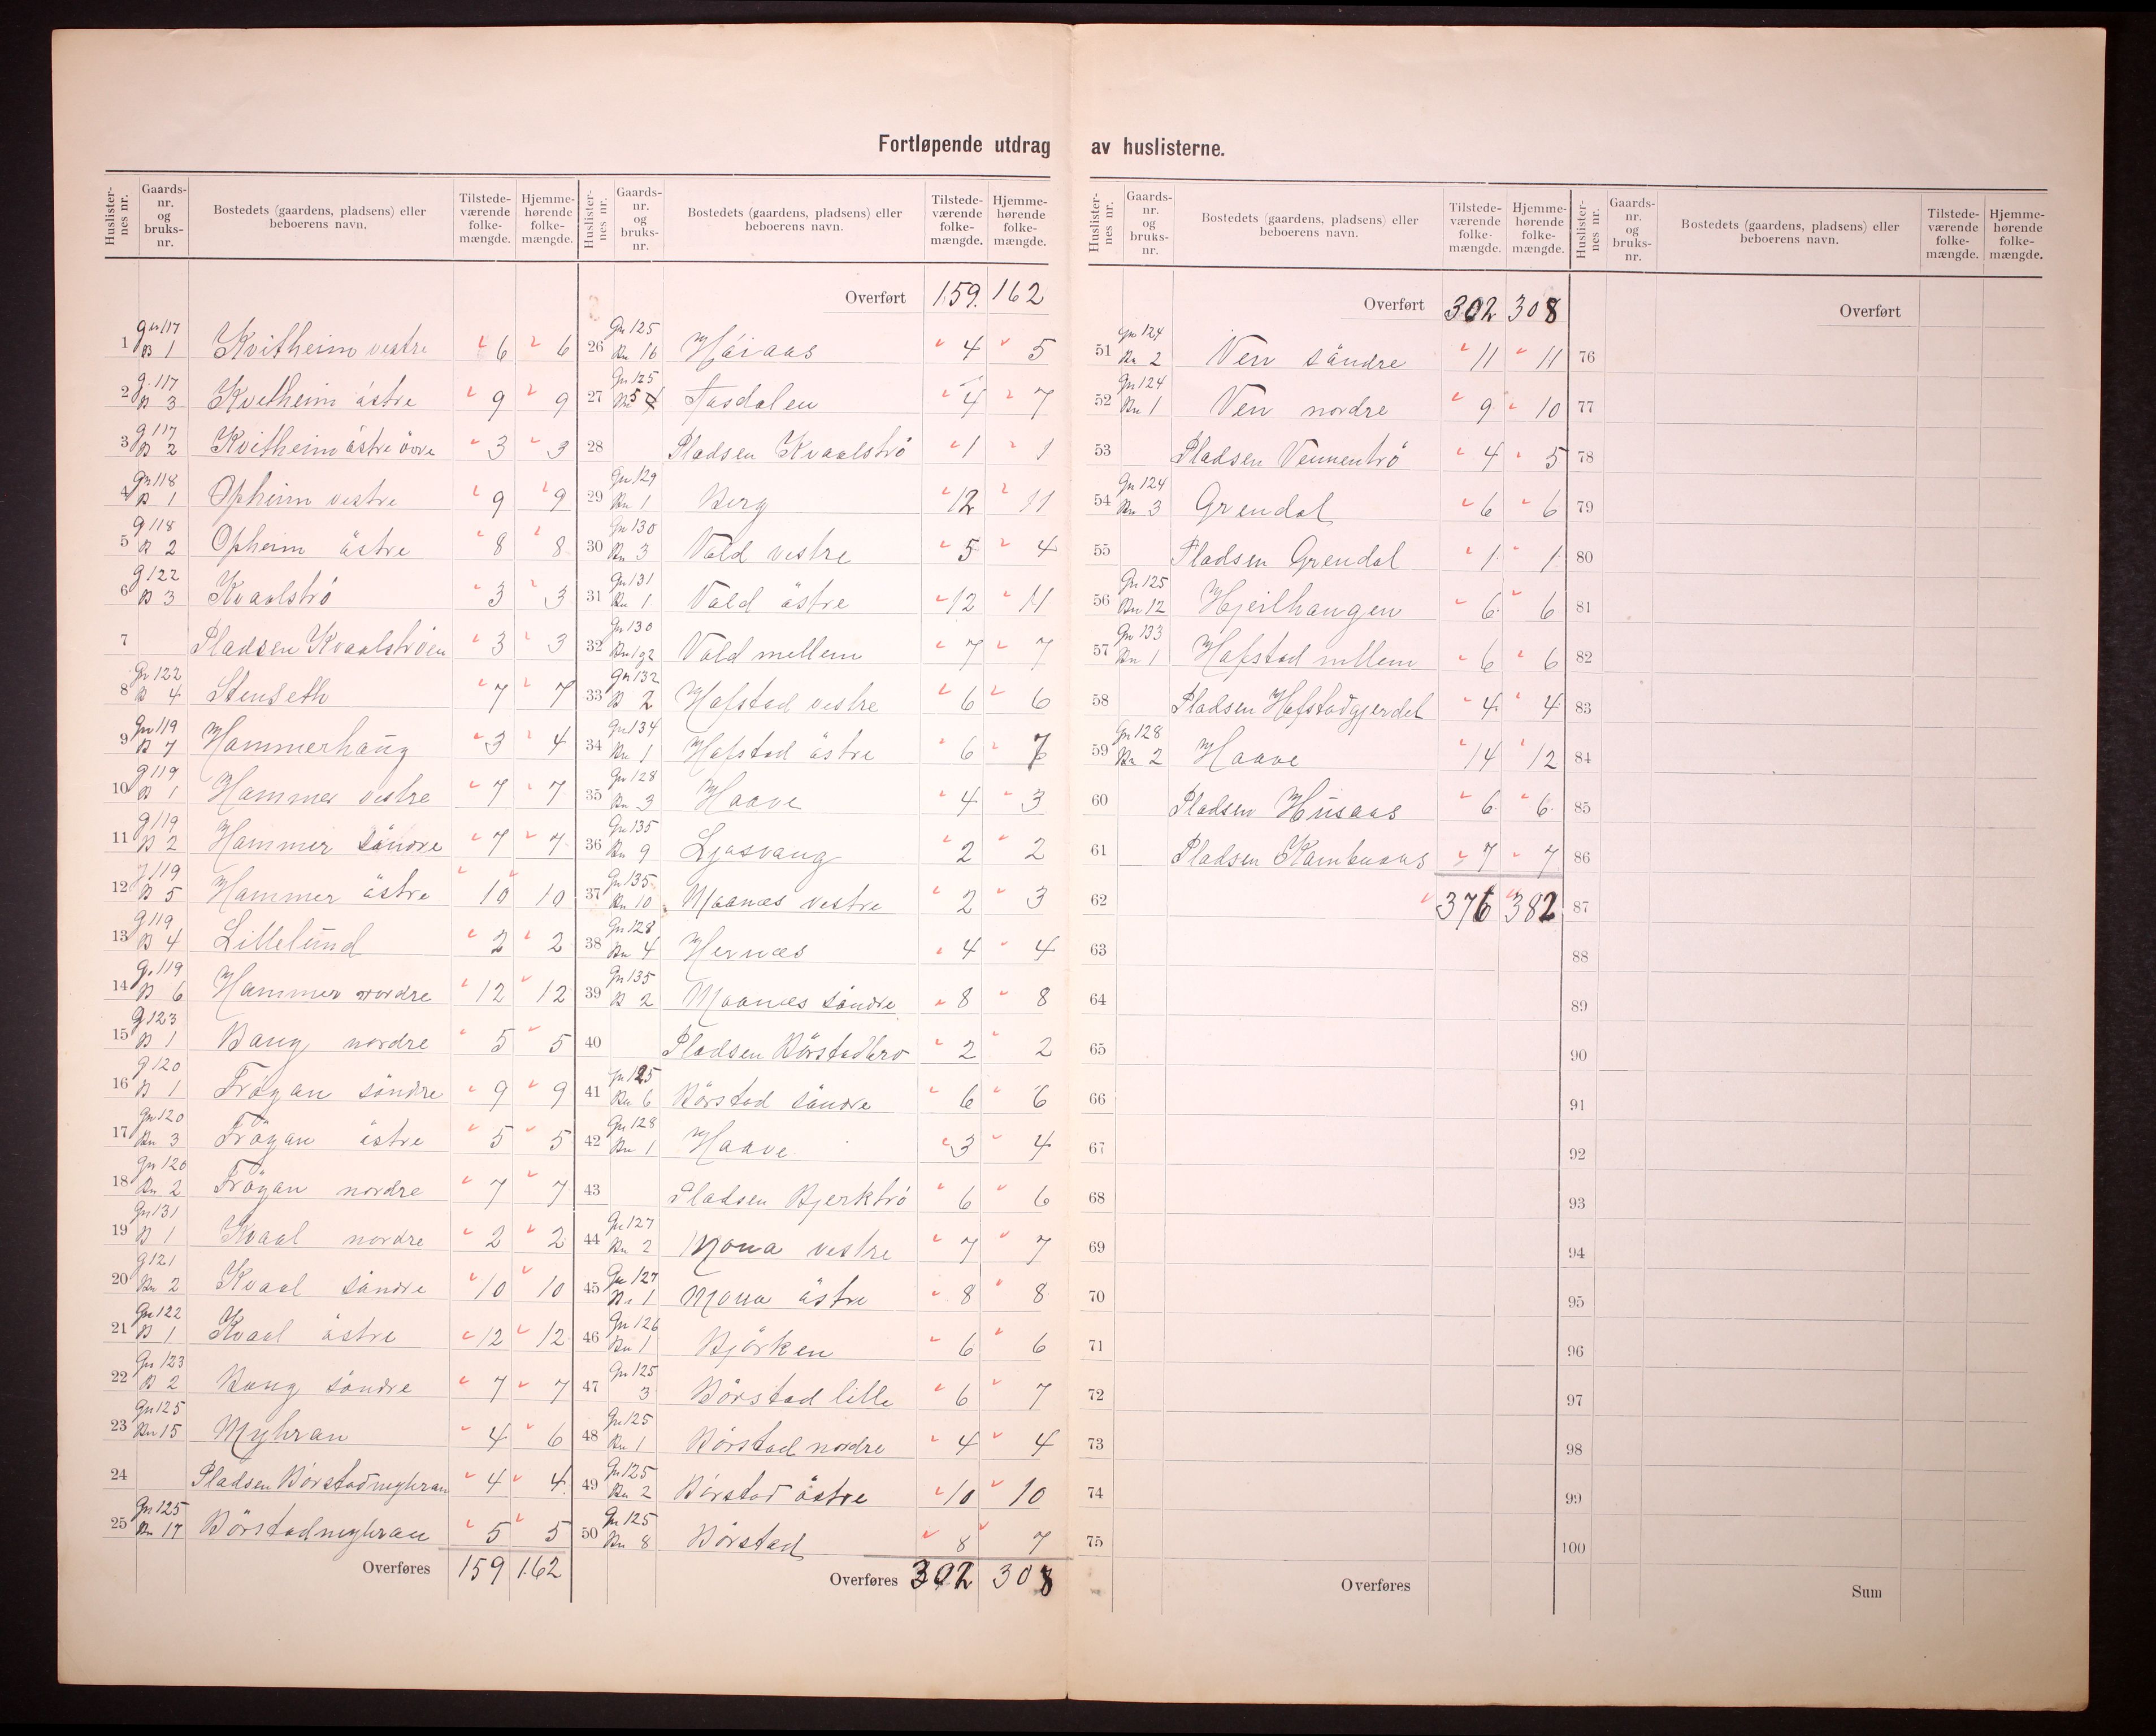 Fortløpende utdrag av huslisterne.
Huslisternes nr. Gaardsnr. og bruksnr. Bostedets (gaardens, pladsens) eller beboerens navn. Tilstedeværende folkemængde. Hjemmehørende folkemængde.
1 gn 117 B 1 Kvitheim vestre 6 6
2 g. 117 B 3 Kvitheim östre 9 9
3 g 117 B 2 Kvitheim östre övre 3 3
4 gn 118 B 1 Opheim vestre 9 9
5 g 118 B 2 Opheim östre 8 8
6 g 122 B 3 Kvaalströ 3 3
7 Pladsen Kvaalströen 3 3
8 Gn 122 B 4 Stenseth 7 7
9 Gn 119 B 7 Hammerhaug 3 4
10 g 119 B 1 Hammer vestre 7 7
11 g 119 B 2 Hammer söndre 7 7
12 g 119 B 5 Hammer östre 10 10
13 g 119 B 4 Lillelund 2 2
14 g. 119 B 6 Hammer nordre 12 12
15 g 123 B 1 Bang nordre 5 5
16 g 120 B 1 Fröyan söndre 9 9
17 Gn 120 Bn 3 Fröyan östre 5 5
18 Gn 120 Bn 2 Fröyan nordre 7 7
19 Gn 131 B 1 Kvaal nordre 2 2
20 g 121 Bn 2 Kvaal söndre 10 10
21 Gn 122 B 1 Kvaal östre 12 12
22 Gn 123 B 2 Bang söndre 7 7
23 Gn 125 Bn 15 Myhran 4 6
24 Pladsen Börstadmyhran 4 4
25 Gn 125 Bn 17 Börstadmyhran 5 5
Overføres 159 162
Huslisternes nr. Gaardsnr. og bruksnr. Bostedets (gaardens, pladsens) eller beboerens navn. Tilstedeværende folkemængde. Hjemmehørende folkemængde.
Overført 159. 162
26 Gn 125 Bn 16 Höiaas 4 5
27 Gn 125 Bn 5 4 7
28 Pladsen Kvaalströ 1 1
29 Gn 129 Bn 1 Berg 12 11
30 Gn 130 Bn 3 Vold vestre 5 4
31 Gn 131 Bn 1 Vold östre 12 11
32 Gn 130 Bn 1 g 2 Vold mellem 7 7
33 Gn 132 B 2 Hofstad vestre 6 6
34 Gn 134 Bn 1 Hofstad östre 6 7
35 Gn 128 Bn 3 Haave 4 3
36 Gn 135 Bn 9 Ljosvang 2 2
37 Gn 135 Bn 10 Moanes vestre 2 3
38 Gn 128 Bn 4 Hernes 4 4
39 Gn 135 B 2 Moanes söndre 8 8
40 Pladsen Börstadbro 2 2
41 Gn 125 Bn 6 Börstad söndre 6 6
42 Gn 128 Bn 1 Haave 3 4
43 Pladsen Bjerktrö 6 6
44 Gn 127 Bn 2 Mona vestre 7 7
45 Gn 127 Bn 1 Mona östre 8 8
46 Gn 126 Bn 1 Björken 6 6
47 Gn 125 3 Börstad lille 6 7
48 Gn 125 Bn 1 Börstad nordre 4 4
49 Gn 125 Bn 2 Börstad östre 10 10
50 Gn 125 Bn 8 Börstad 8 7
Overføres 302 308
Huslisternes nr. Gaardsnr. og bruksnr. Bostedets (gaardens, pladsens) eller beboerens navn. Tilstedeværende folkemængde. Hjemmehørende folkemængde.
Overført 302 308
51 Gn 124 Bn 2 Ven söndre 11 11
52 Gn 124 Bn 1 Ven nordre 9 10
53 Pladsen Vennentrö 4 5
54 Gn 124 Bn 3 Grendal 6 6
55 Pladsen Grendal 1 1
56 Gn 125 Bn 12 Hjeilhaugen 6 6
57 Gn 133 Bn 1 Hofstad mellem 6 6
58 Pladsen Hofstadgjerdet 4 4
59 Gn 128 Bn 2 Haave 14 12
60 Pladsen Husaas 6 6
61 Pladsen Kambuaas 7 7
62 376 382
63
64
65
66
67
68
69
70
71
72
73
74
75
Overføres
Huslisternes nr. Gaardsnr. og bruksnr. Bostedets (gaardens, pladsens) eller beboerens navn. Tilstedeværende folkemængde. Hjemmehørende folkemængde.
Overført
76
77
78
79
80
81
82
83
84
85
86
87
88
89
90
91
92
93
94
95
96
97
98
99
100
Sum